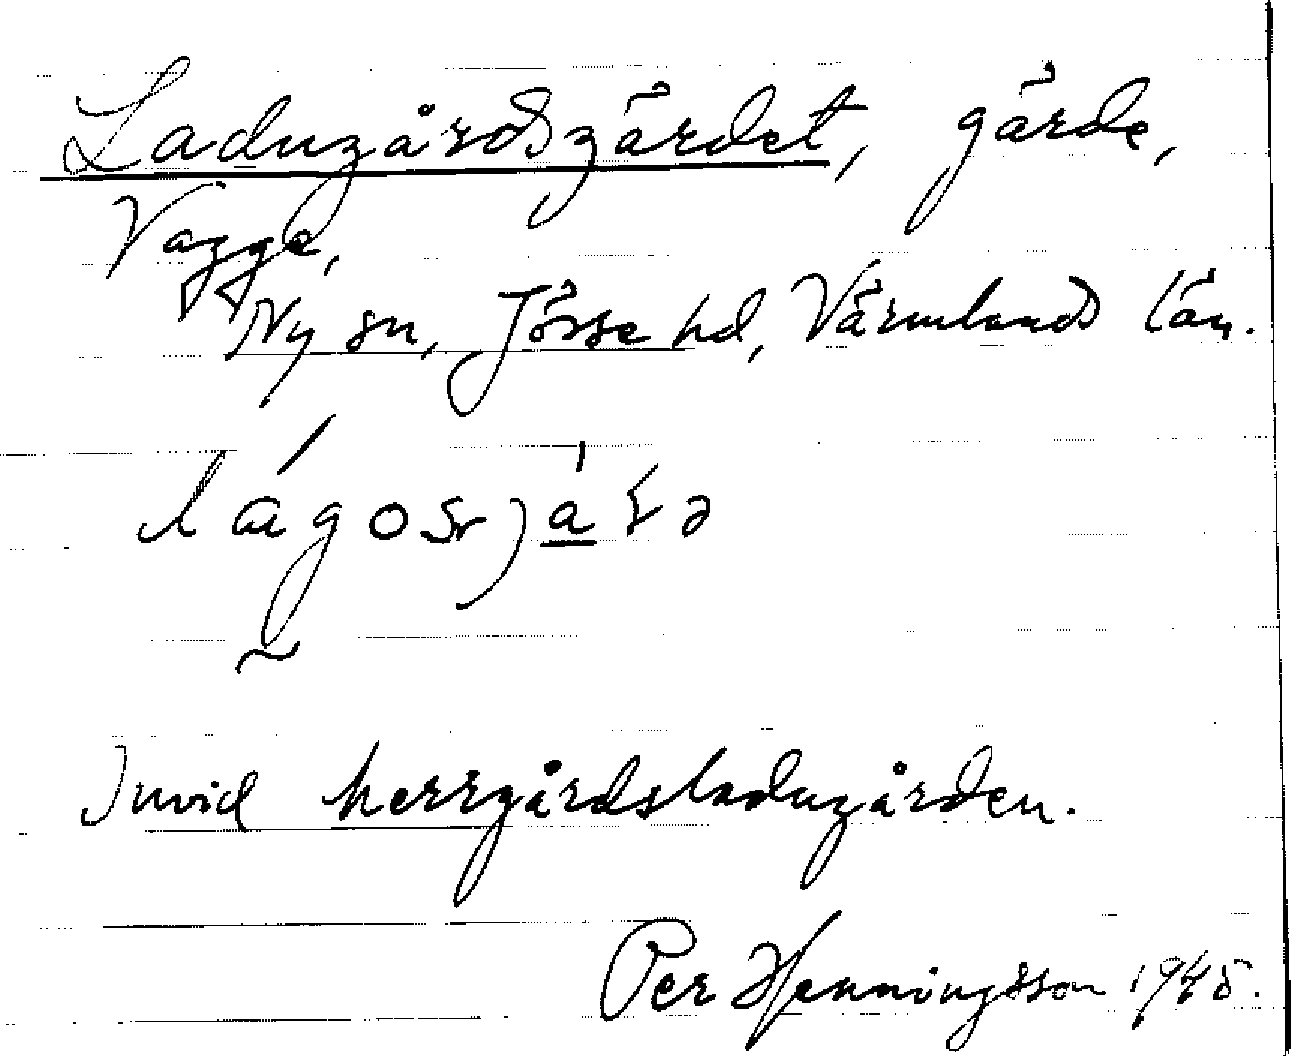 Ladugårdsgärdet, gärde,
Vagge,
Ny sn, Jösse hd, Värmlands län.
Invid herrgårdsladugården.
Per Henningsson 1945.